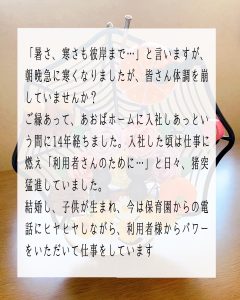 「暑さ、寒さも彼岸まで…」と言いますが、
朝晩急に寒くなりましたが、皆さん体調を崩
していませんか？
ご縁あって、あおばホームに入社しあっとい
う間に14年経ちました。入社した頃は仕事に
燃え「利用者さんのために…」と日々、猪突
猛進していました。
結婚し、子供が生まれ、今は保育園からの電
話にヒヤヒヤしながら、利用者様からパワー
をいただいて仕事をしています